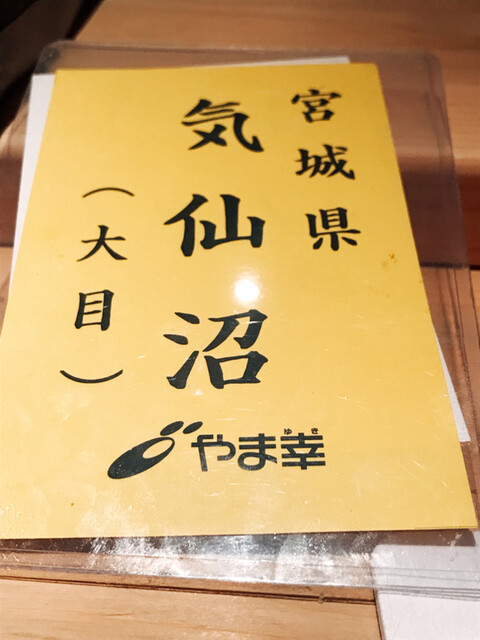 宮城県
気仙沼
（大目）
やま幸
ゆき